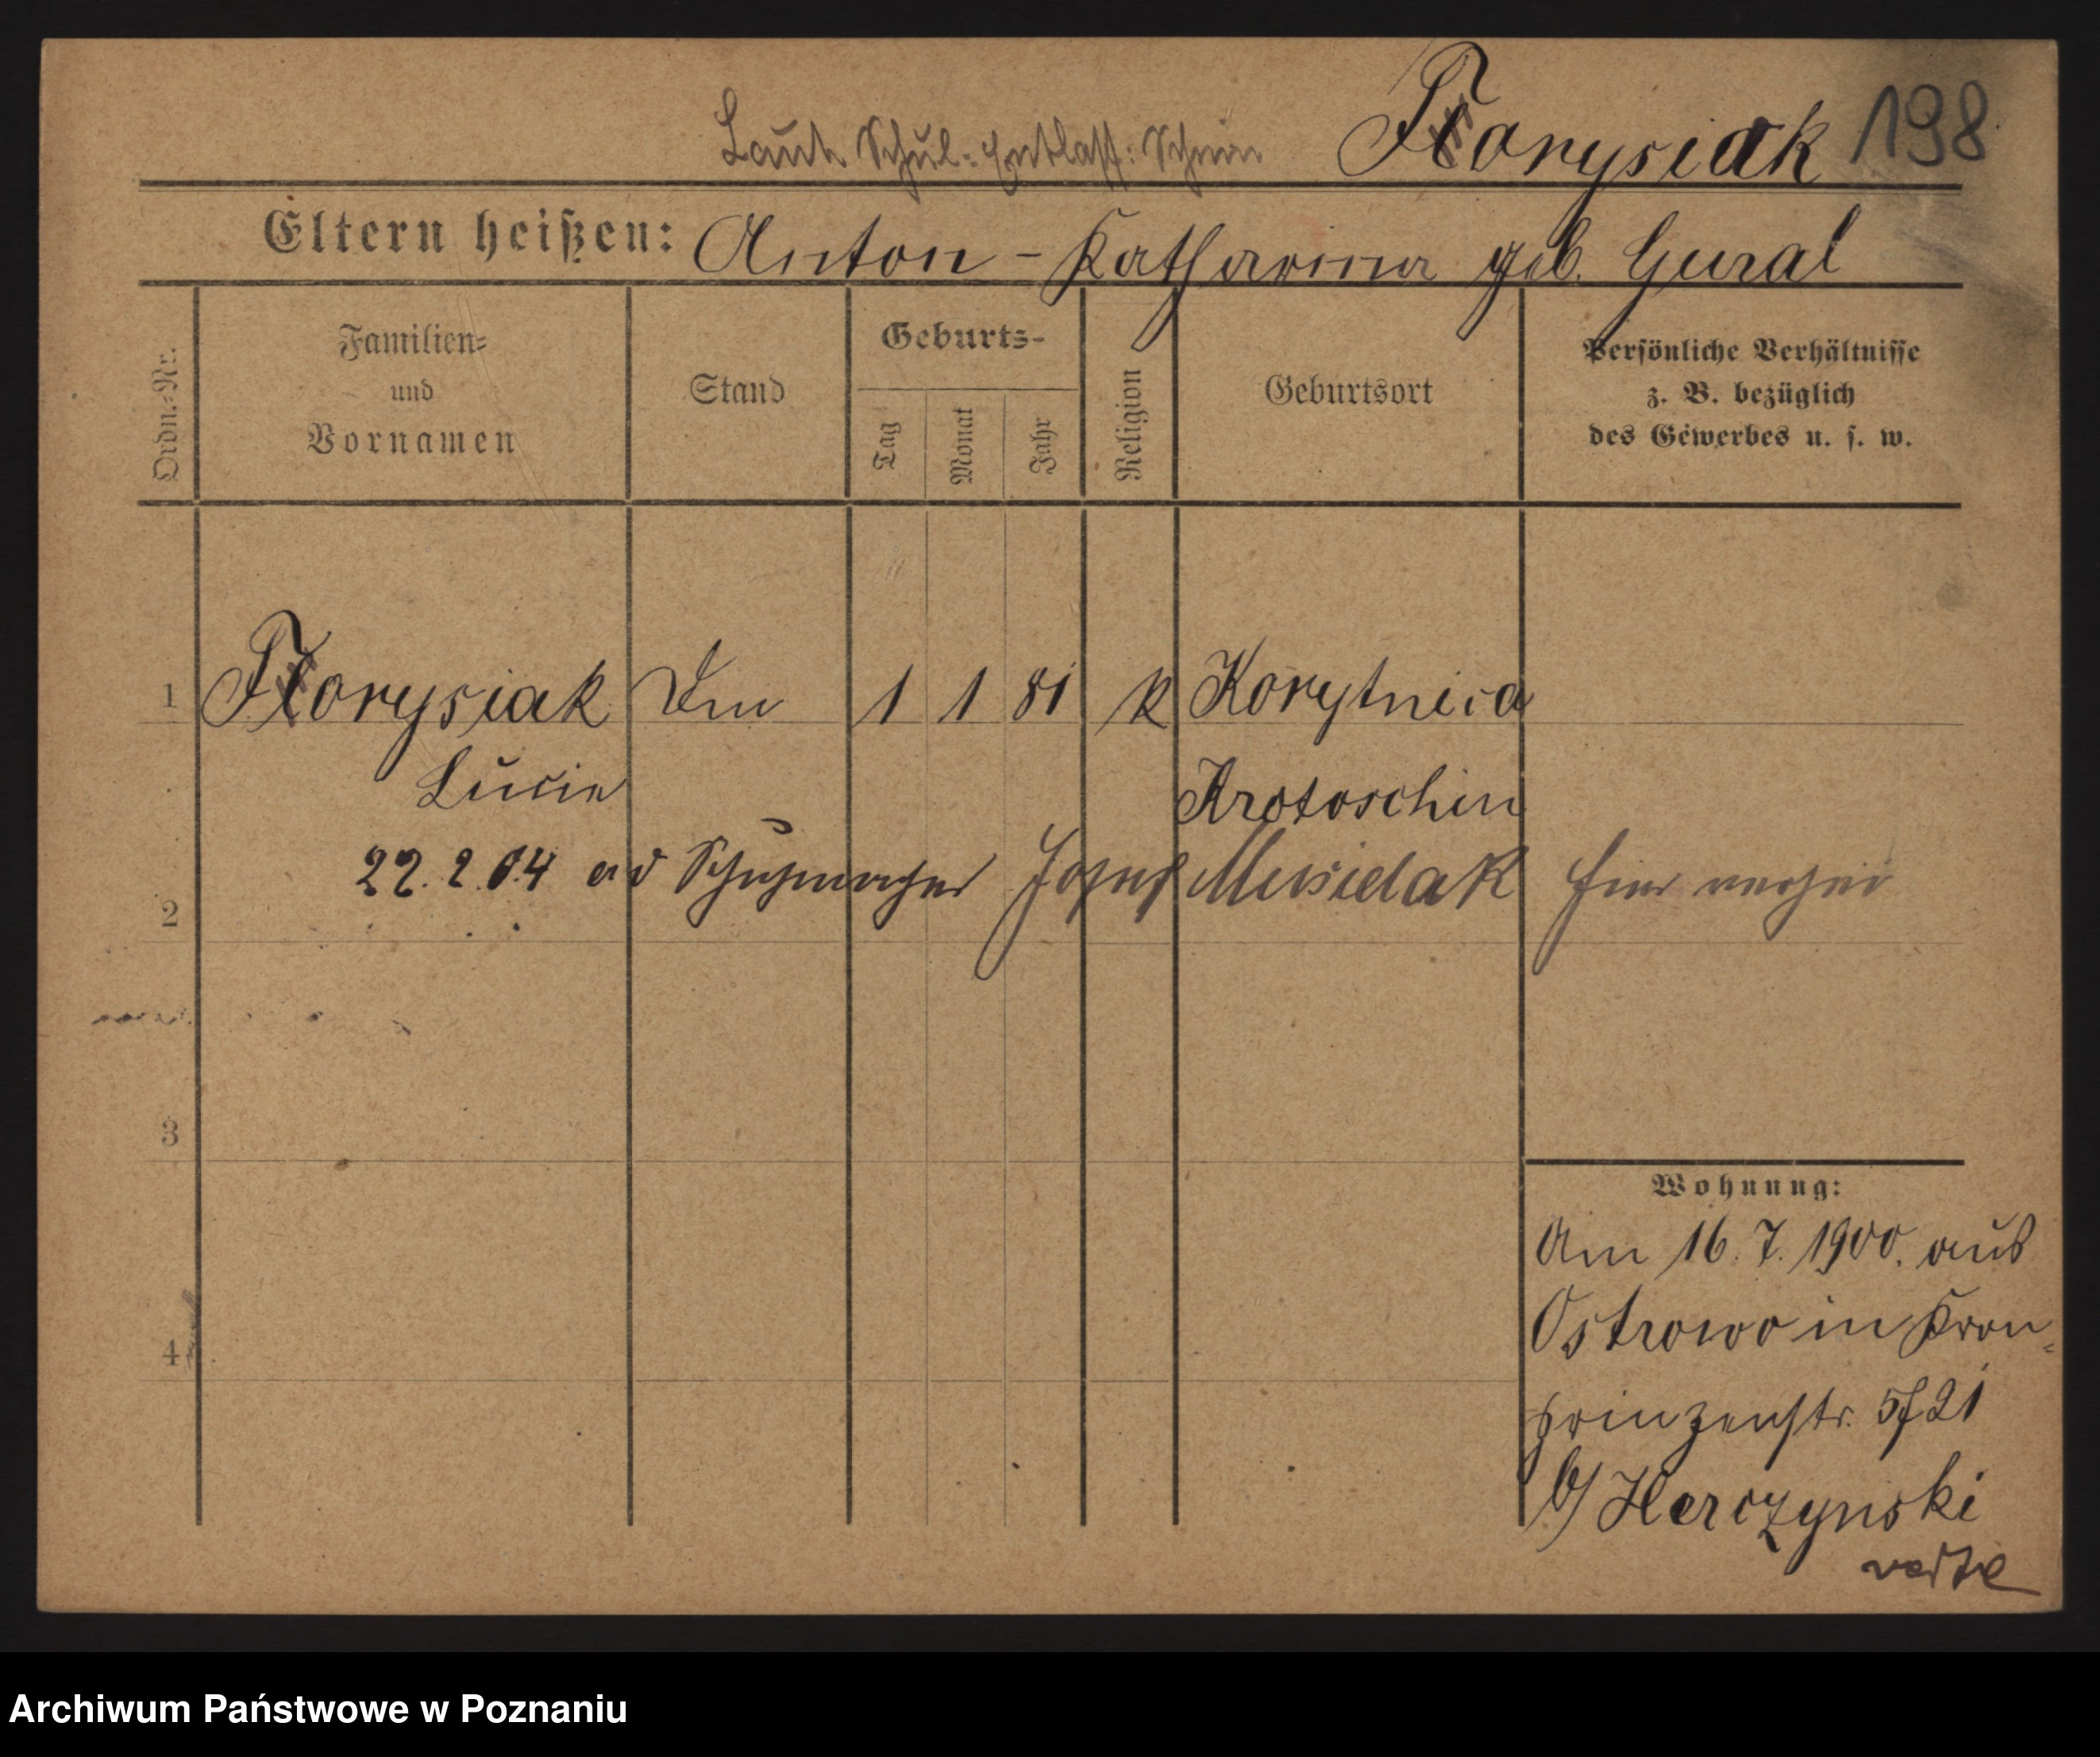 Laut Schul-Entlass: Schein Florysiak 198
Eltern heißen: Anton - Katharina geb. Gural
Ordn.-Nr.
Familien-
und
Vornamen
Stand
Geburts-
Tag
Monat
Jahr
Religion
Geburtsort
Persönliche Verhältnisse
z. B. bezüglich
des Gewerbes u. s. w.
1 Florysiak 1 1 81 k Korytnica
Lucie Krotoschin
22.2.04 Schuhmacher Josef Musielak hier
2
3
4
Wohnung:
Am 16.7.1900. aus
Ostrowo in Kron-
prinzenstr. 5f21
b/ Herczynski
verte
Archiwum Państwowe w Poznaniu